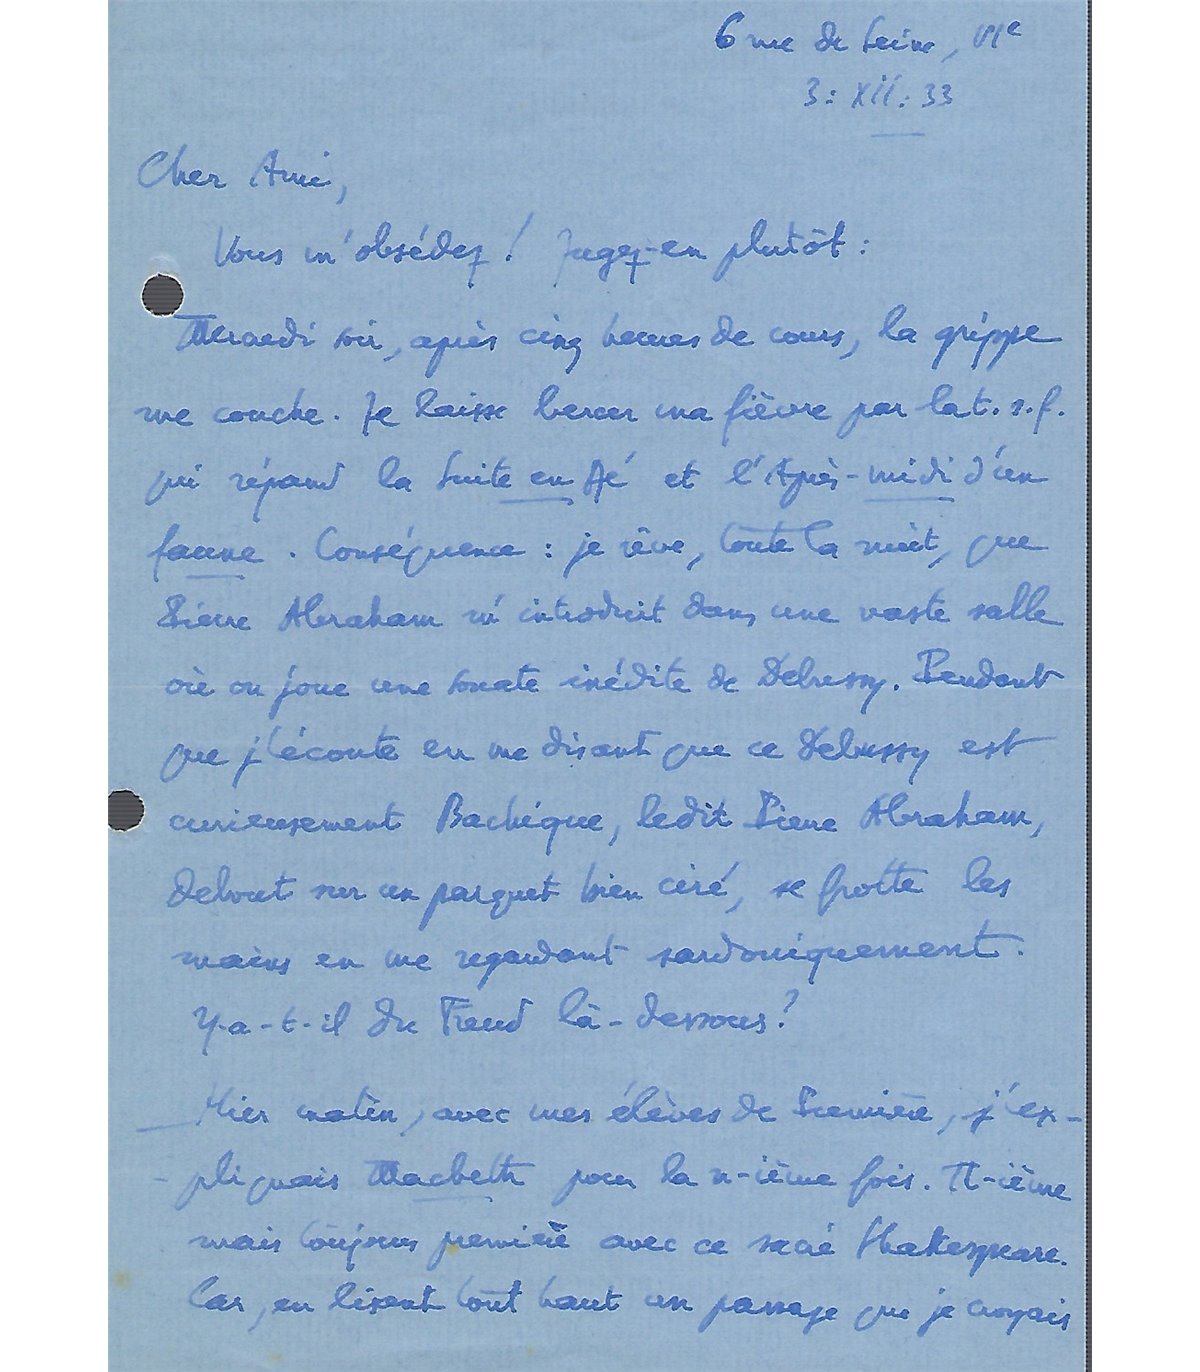 6 rue de Seine, VIe
3: XII: 33
Cher Ami,
Vous m'obsédez ! Jugez-en plutôt :
Mercredi soir, après cinq heures de cours, la grippe
me couche. Je laisse bercer ma fièvre par la t.s.f.
qui répand la Suite en Ré et l'Après-midi d'un
faune. Conséquence : je rêve, toute la nuit, que
Pierre Abraham m'introduit dans une vaste salle
où on joue une sonate inédite de Debussy. Pendant
que j'écoute en me disant que ce Debussy est
curieusement Bachique, ledit Pierre Abraham,
debout sur un parquet bien ciré, se frotte les
mains en me regardant sardoniquement.
Y-a-t-il du Freud là-dessous ?
Hier matin, avec mes élèves de Première, j'ex-
-pliquais Macbeth pour la n-ième fois. N-ième
mais toujours première avec ce sacré Shakespeare.
Car, en lisant tout haut un passage que je croyais